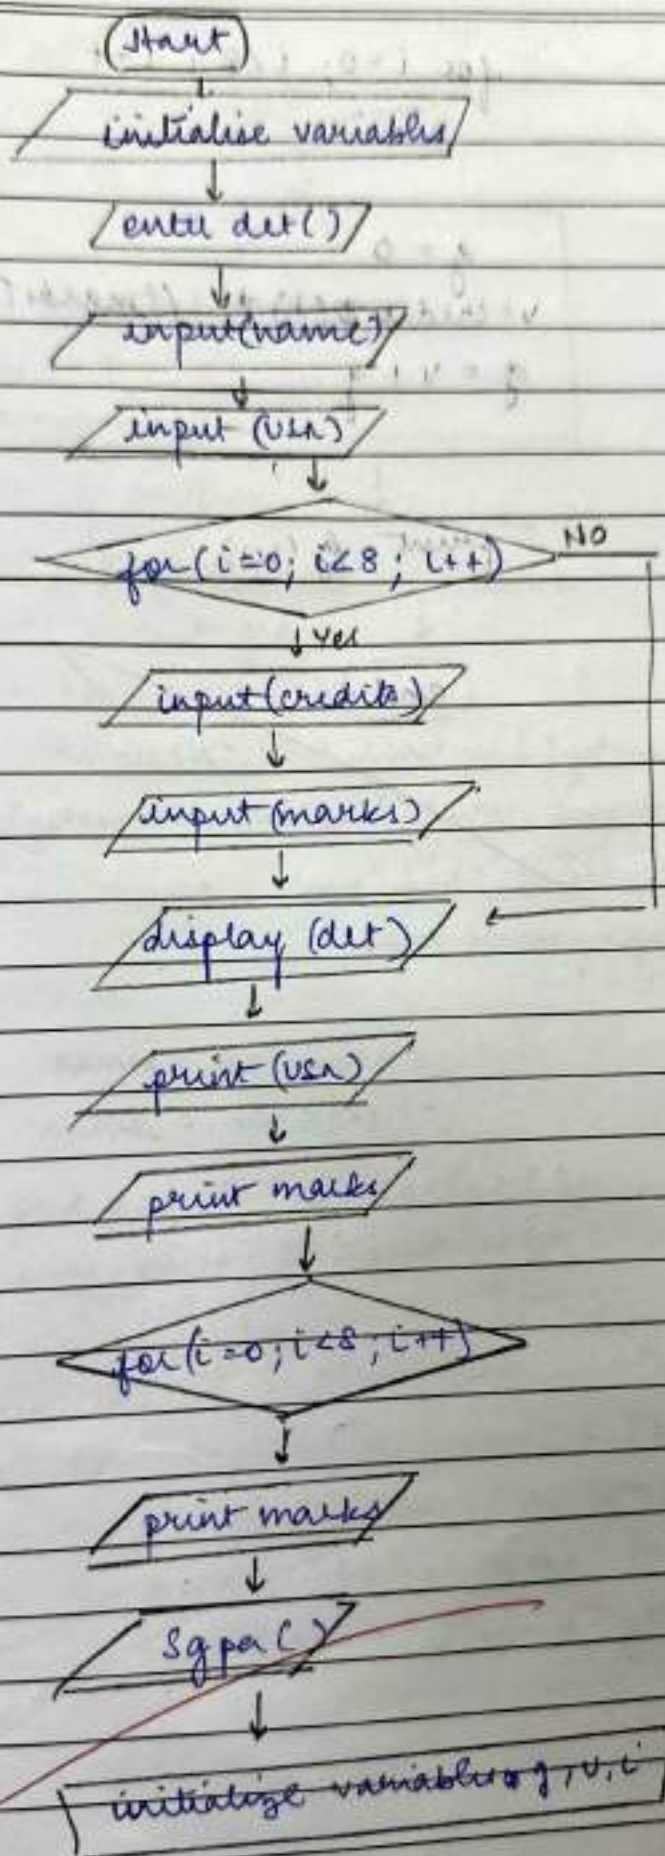 Start
initialise variables
enter det()
input(name)
input (USN)
for(i=0; i<8; i++)
NO
yes
input(credits)
input(marks)
display (det)
print (USN)
print marks
for(i=0; i<8; i++)
print marks
Sgpa()
initialize variables g, v, i